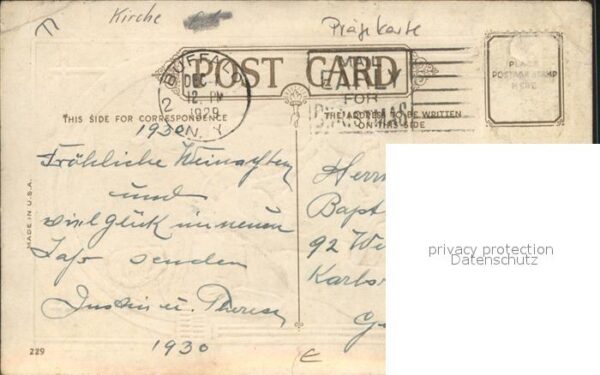 Kirche
Prägekarte
POST CARD
BUFFALO
DEC
2
12. PM
1929
N.Y.
MAIL
EARLY
FOR
CHRISTMAS
PLACE
POSTAGE STAMP
HERE
THIS SIDE FOR CORRESPONDENCE
THE ADDRESS TO BE WRITTEN
ON THIS SIDE
1930
Fröhliche Weinachten
und
viel Glück im neuen
Jahr senden
Justin u. Theresa
1930
Herrn
Bapt
92 Wi
Karls
Ge
privacy protection
Datenschutz
MADE IN U.S.A.
229